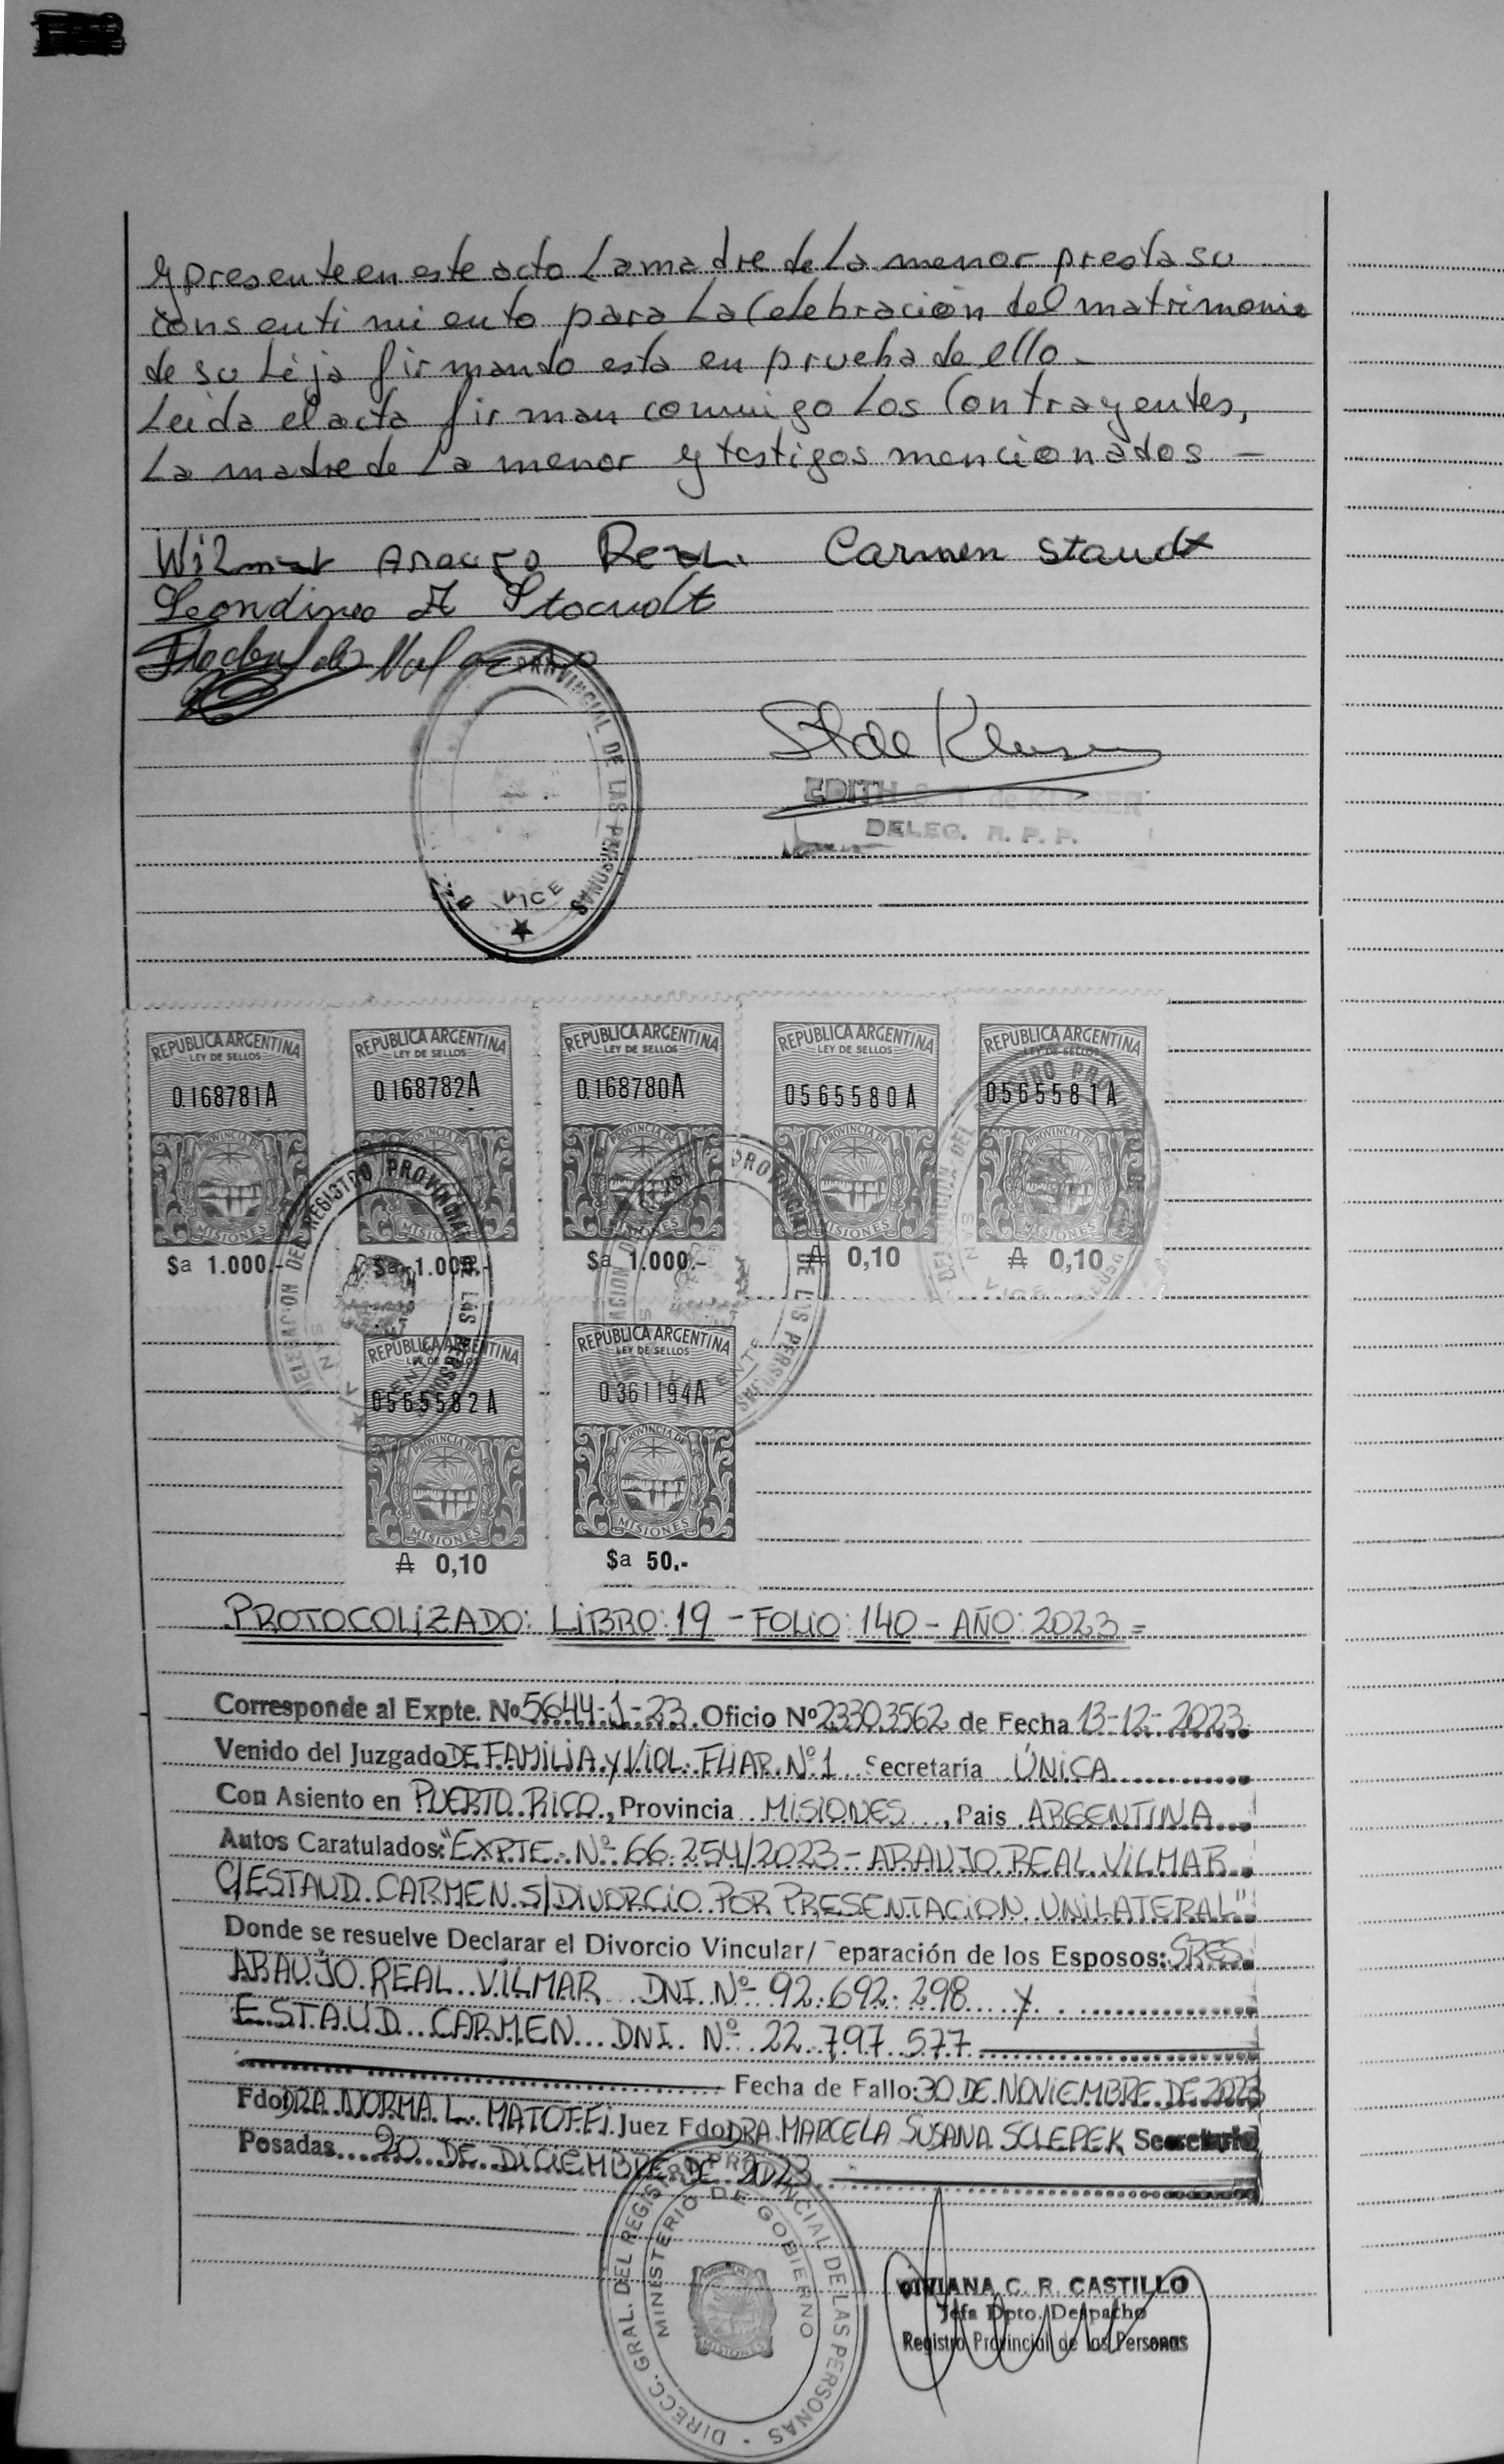 y presente en este acto la madre de la menor presta su
consentimiento para la Celebración del matrimonio
de su hija firmando esta en prueba de ello -
Leida el acta firman conmigo los Contrayentes,
La madre de la menor y testigos mencionados -
Carmen Staudt
EDITH de KLUSER
DELEG. R. P. P.
PROVINCIAL DE LAS PERSONAS
VICE
REPUBLICA ARGENTINA REPUBLICA ARGENTINA REPUBLICA ARGENTINA REPUBLICA ARGENTINA REPUBLICA ARGENTINA
LEY DE SELLOS LEY DE SELLOS LEY DE SELLOS LEY DE SELLOS LEY DE SELLOS
0.168781A 0.168782A 0.168780A 0565580A 0565581A
PROVINCIA DE PROVINCIA DE PROVINCIA DE PROVINCIA DE PROVINCIA DE
MISIONES MISIONES MISIONES MISIONES MISIONES
$a 1.000.- $a 1.000.- $a 1.000.- ₳ 0,10 ₳ 0,10
DELEGACION DEL REGISTRO PROVINCIAL DE LAS PERSONAS
REPUBLICA ARGENTINA REPUBLICA ARGENTINA
LEY DE SELLOS LEY DE SELLOS
0565582A 0361194A
PROVINCIA DE PROVINCIA DE
MISIONES MISIONES
₳ 0,10 $a 50.-
PROTOCOLIZADO: LIBRO: 19 - FOLIO: 140 - AÑO: 2023 =
Corresponde al Expte. Nº 5644-J-23 Oficio Nº 23303562 de Fecha 13-12-2023
Venido del Juzgado DE FAMILIA Y VIOL. FLIAR. Nº 1 Secretaría ÚNICA
Con Asiento en PUERTO RICO, Provincia MISIONES, Pais ARGENTINA
Autos Caratulados: "EXPTE. Nº 66.254/2023 - ARAUJO REAL VILMAR
C/ESTAUD CARMEN S/DIVORCIO POR PRESENTACION UNILATERAL"
Donde se resuelve Declarar el Divorcio Vincular/ eparación de los Esposos: SRES.
ARAUJO REAL VILMAR DNI. Nº 92.692.298 Y
ESTAUD CARMEN DNI. Nº 22.797.577
Fecha de Fallo: 30 DE NOVIEMBRE DE 2023
Fdo DRA NORMA L. MATOFFI Juez Fdo DRA MARCELA SUSANA SCLEPEK Secretario
Posadas 20 DE DICIEMBRE DE 2023
DIRECC. GRAL. DEL REGISTRO PROVINCIAL DE LAS PERSONAS
MINISTERIO DE GOBIERNO
MISIONES
VIVIANA C. R. CASTILLO
Jefa Dpto. Despacho
Registro Provincial de las Personas